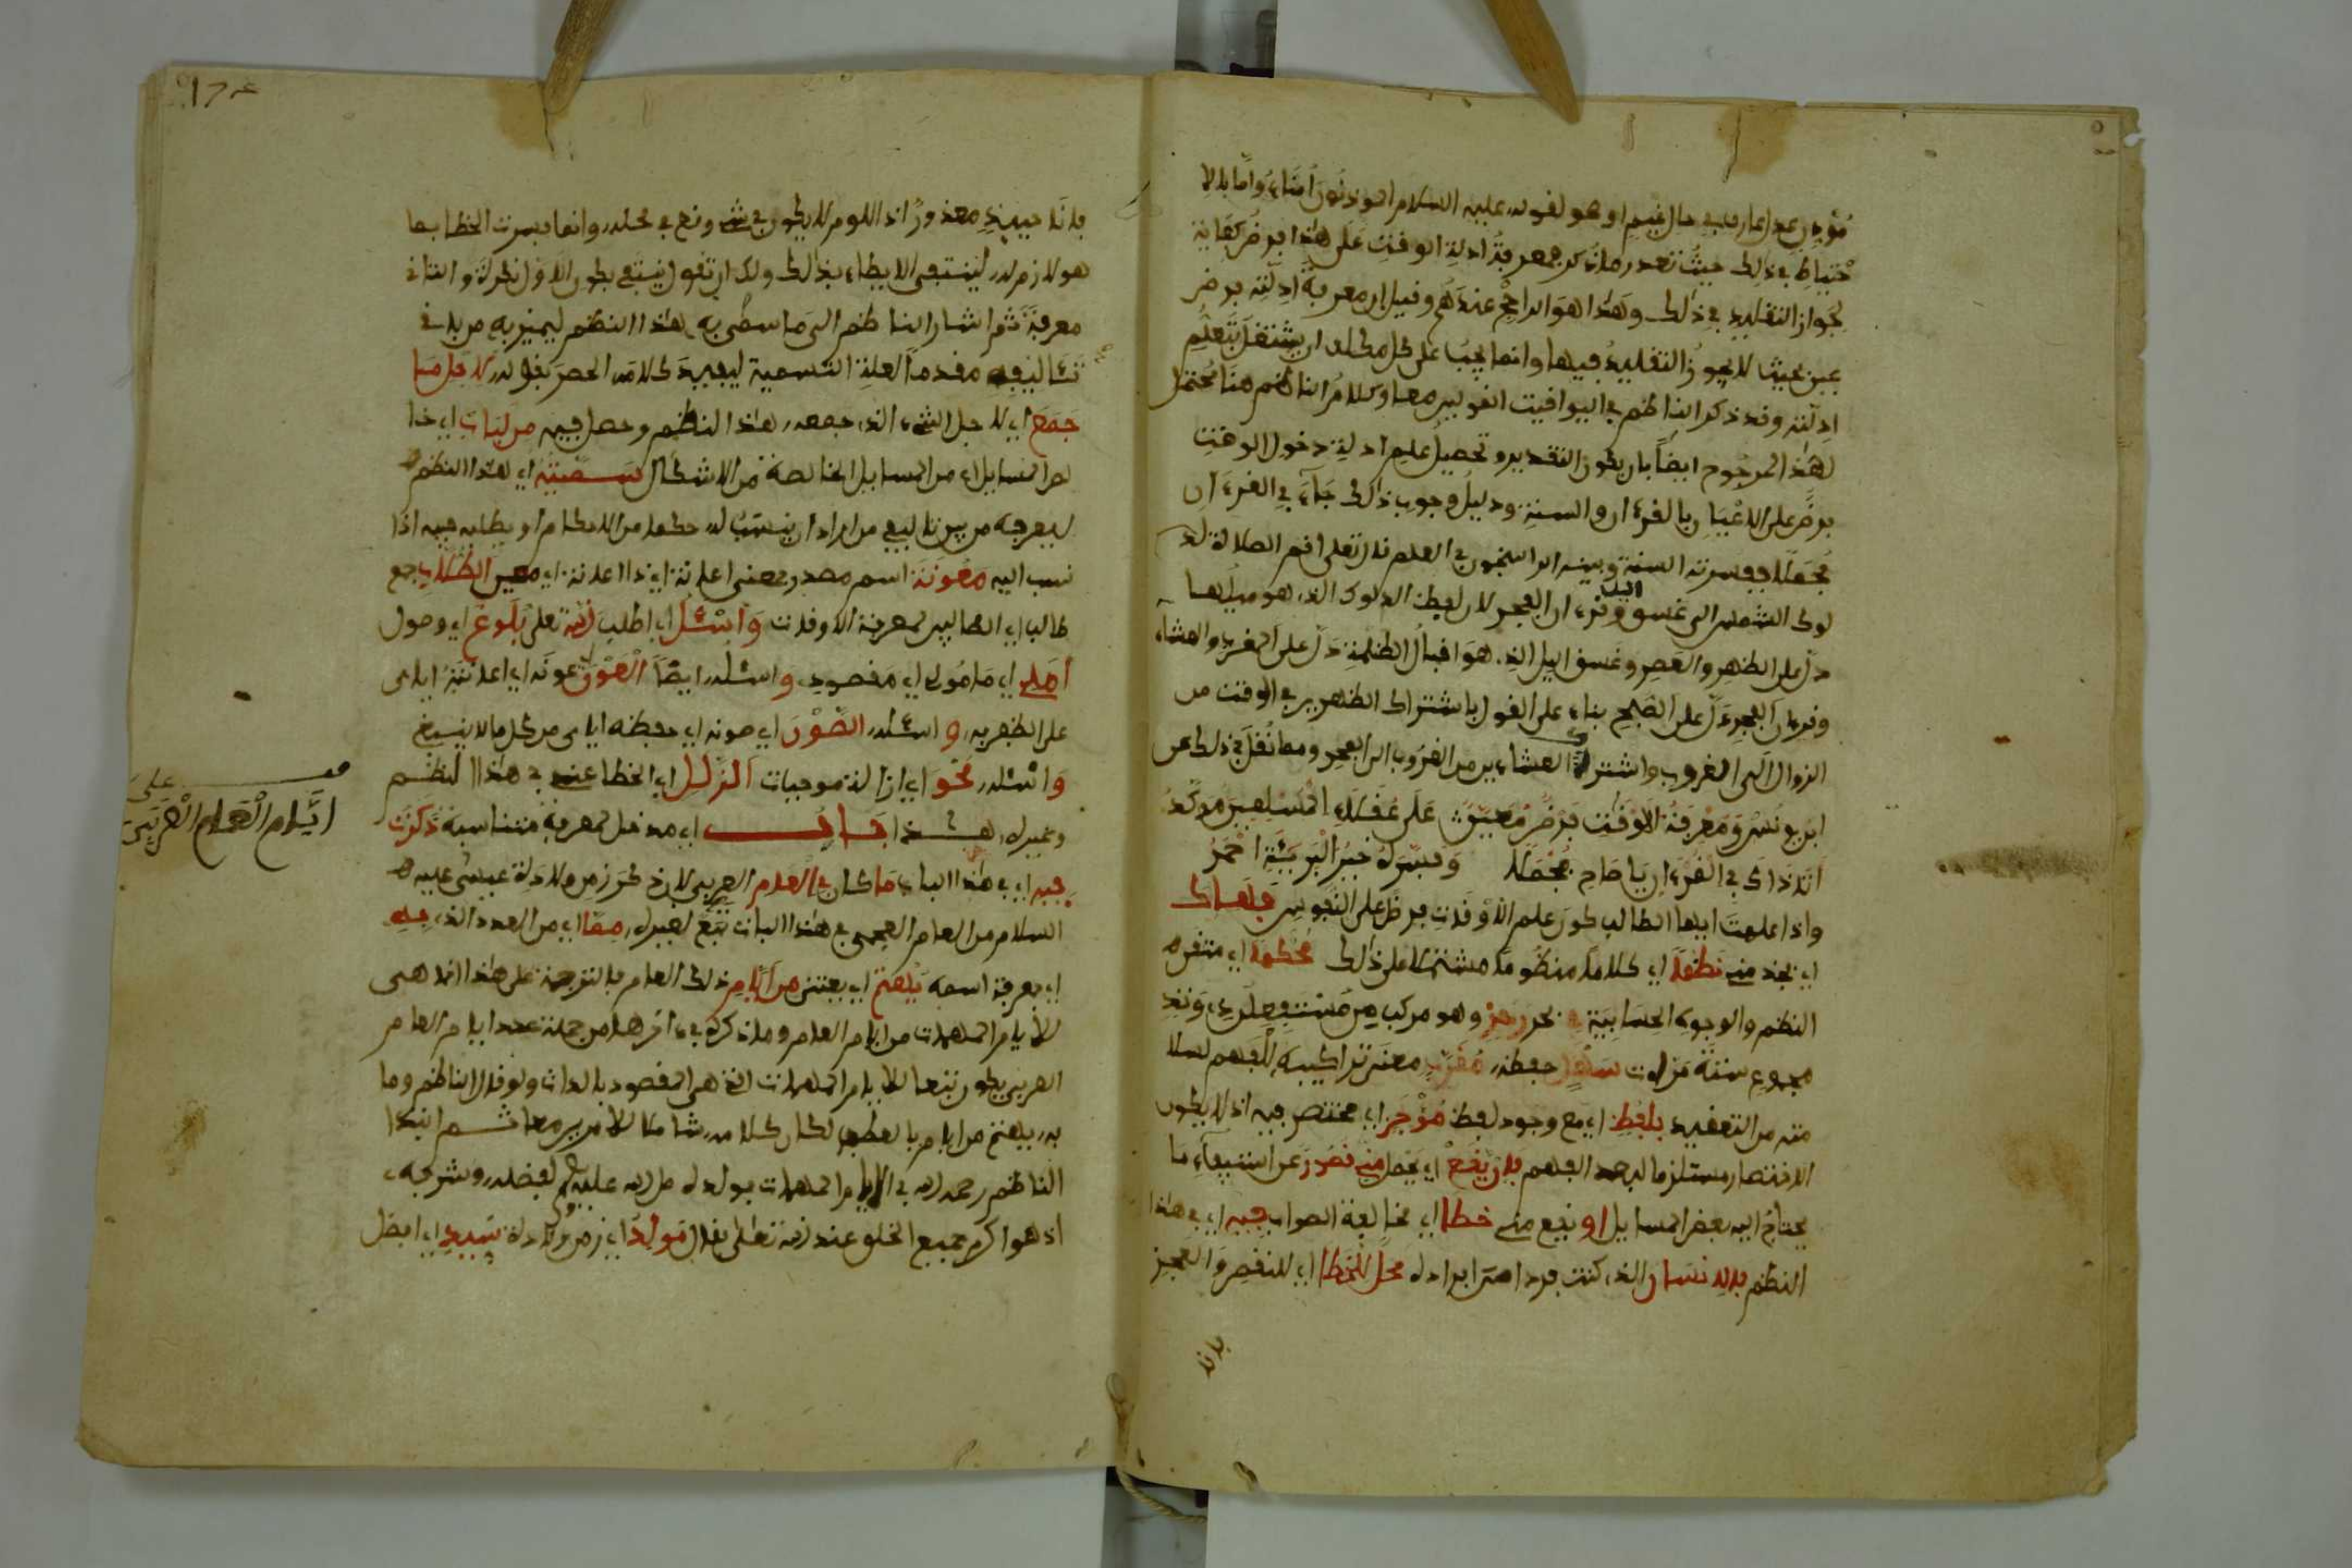 مؤذن عدل عارف في حال غيم او هو لقوله عليه السلام المؤذنون أمناء وأما بلا
حتياط في ذلك حيث تعدر ما ذكر فمعرفة ادلة الوقت على هذا فرض كفاية
لجواز التقليد في ذلك وهذا هو الراجح عندهم وقيل ان معرفة ادلته فرض
عين بحيث لا يجوز التقليد فيها وانما يجب على كل مكلف ان يشتغل بتعلم
ادلته وقد ذكر الناظم في اليواقيت القولين معا وكلام الناظم هنا محتمل
لهذا المرجوح ايضا بان يكون التقدير وتحصيل علم ادلة دخول الوقت
فرض على الاعيان بالقرءان والسنة ودليل وجوب ذلك جاء في القرءان
مجملا ففسرته السنة وبينه الراسخون في العلم قال تعلى اقم الصلاة لد
لوك الشمس الى غسق اليل وقرءان الفجر لان لفظ الدلوك الذي هو ميلها
دل على الظهر والعصر وغسق اليل الذي هو اقبال الظلمة دل على المغرب والعشاء
وقرءان الفجر دل على الصبح بناء على القول باشتراك الظهرين في الوقت من
الزوال الى الغروب واشتراك العشاءين من الغروب الى الفجر ومما نقل في ذلك عن
ابن يونس ومعرفة الاوقات فرض معين على عقلاء المسلمين موكد
اتى ذاك في القرءان يا صاح مجملا وفسره خير البرية احمد
واذا علمت ايها الطالب كون علم الاوقات فرض على النفوس فهاك
اي خذ مني نظما اي كلاما منظوما مشتملا على ذلك محكما اي متقن
النظم والوجوه الحسابية في بحر رجز وهو مركب من مستفعلن وتد
مجموع ستة مرات سهل حفظه مقرب معنى تراكيبه للفهم لسلا
مته من التعقيد بلفظ اي مع وجود لفظ موجز اي مختصر فيه اذ لا يكون
الاختصار مستلزما لبعد الفهم فان يقع اي يحصل مني قصور عن استيفاء ما
يحتاج اليه بعض المسايل او يقع مني خطا اي مخالفة الصواب فيه اي في هذا
النظم فالانسان الذي كنت فردا من افراده محل للخطا اي للنقص والعجز
فانه
فانه حينئذ معذور اذ اللوم لا يكون في شيء وقع في محله وانما فسرت الخطا بما
هو لازم له لينتفي الايطاء بذلك ولك ان تقول ينتفي بكون الاول نكرة والثاني
معرفة ثم اشار الناظم الى ما سمى به هذا النظم ليميز به من باقي
تئاليفه مقدما العلة التسمية ليفيد كلامه الحصر بقوله لاجل ما
جمع اي لاجل الشيء الذي جمعه هذا النظم وحصل فيه من لباب اي خا
لص المسايل اي من المسايل الخالصة من الاشكال سميته اي هذا النظم
ليعرفه من بين تئاليفي من اراد ان ينسب له حكما من الاحكام او يطلبه فيه اذا
نسب اليه معونة اسم مصدر بمعنى اعانة اي ذا اعانة اي معين الطلاب جمع
طالب اي الطالبين لمعرفة الاوقات واسئل اي اطلب الله تعلى بلوغ اي وصول
املي اي مامولي اي مقصودي واسئله ايضا العون عونه اي اعانته اياي
على الظفر به واسئله الصون اي صونه اي حفظه اياي من كل ما لا ينبغي
واسئله محو اي ازالة موجبات الزلل اي الخطا عني في هذا النظم
وغيره هذا باب اي مدخل لمعرفة متناسبة ذكرت
فيه اي في هذا الباب ما كان في العام العربي لان ذكر زمن ولادة عيسى عليه
السلام من العام العجمي في هذا الباب تبع لغيره مما اي من العدد الذي به
اي بمعرفة اسمه يهتم اي يعتنى من ايام ذلك العام فالترجمة على هذا انما هي
للايام المهمات من ايام العام وما ذكره في ءاخرها من جملة عدد ايام العام
العربي يكون تبعا للايام المهمات التي هي المقصود بالذات ولو قال الناظم وما
به يهتم من ايام بالعطف لكان كلامه شاملا للامرين معا ثم ابتدا
الناظم رحمه الله في الايام المهمات بمولده صلى الله عليه وسلم لفضله وشرفه
اذ هو اكرم جميع الخلق عند الله تعلى فقال مولد اي زمن ولادة سيد اي افضل
على
ايام العام العربي